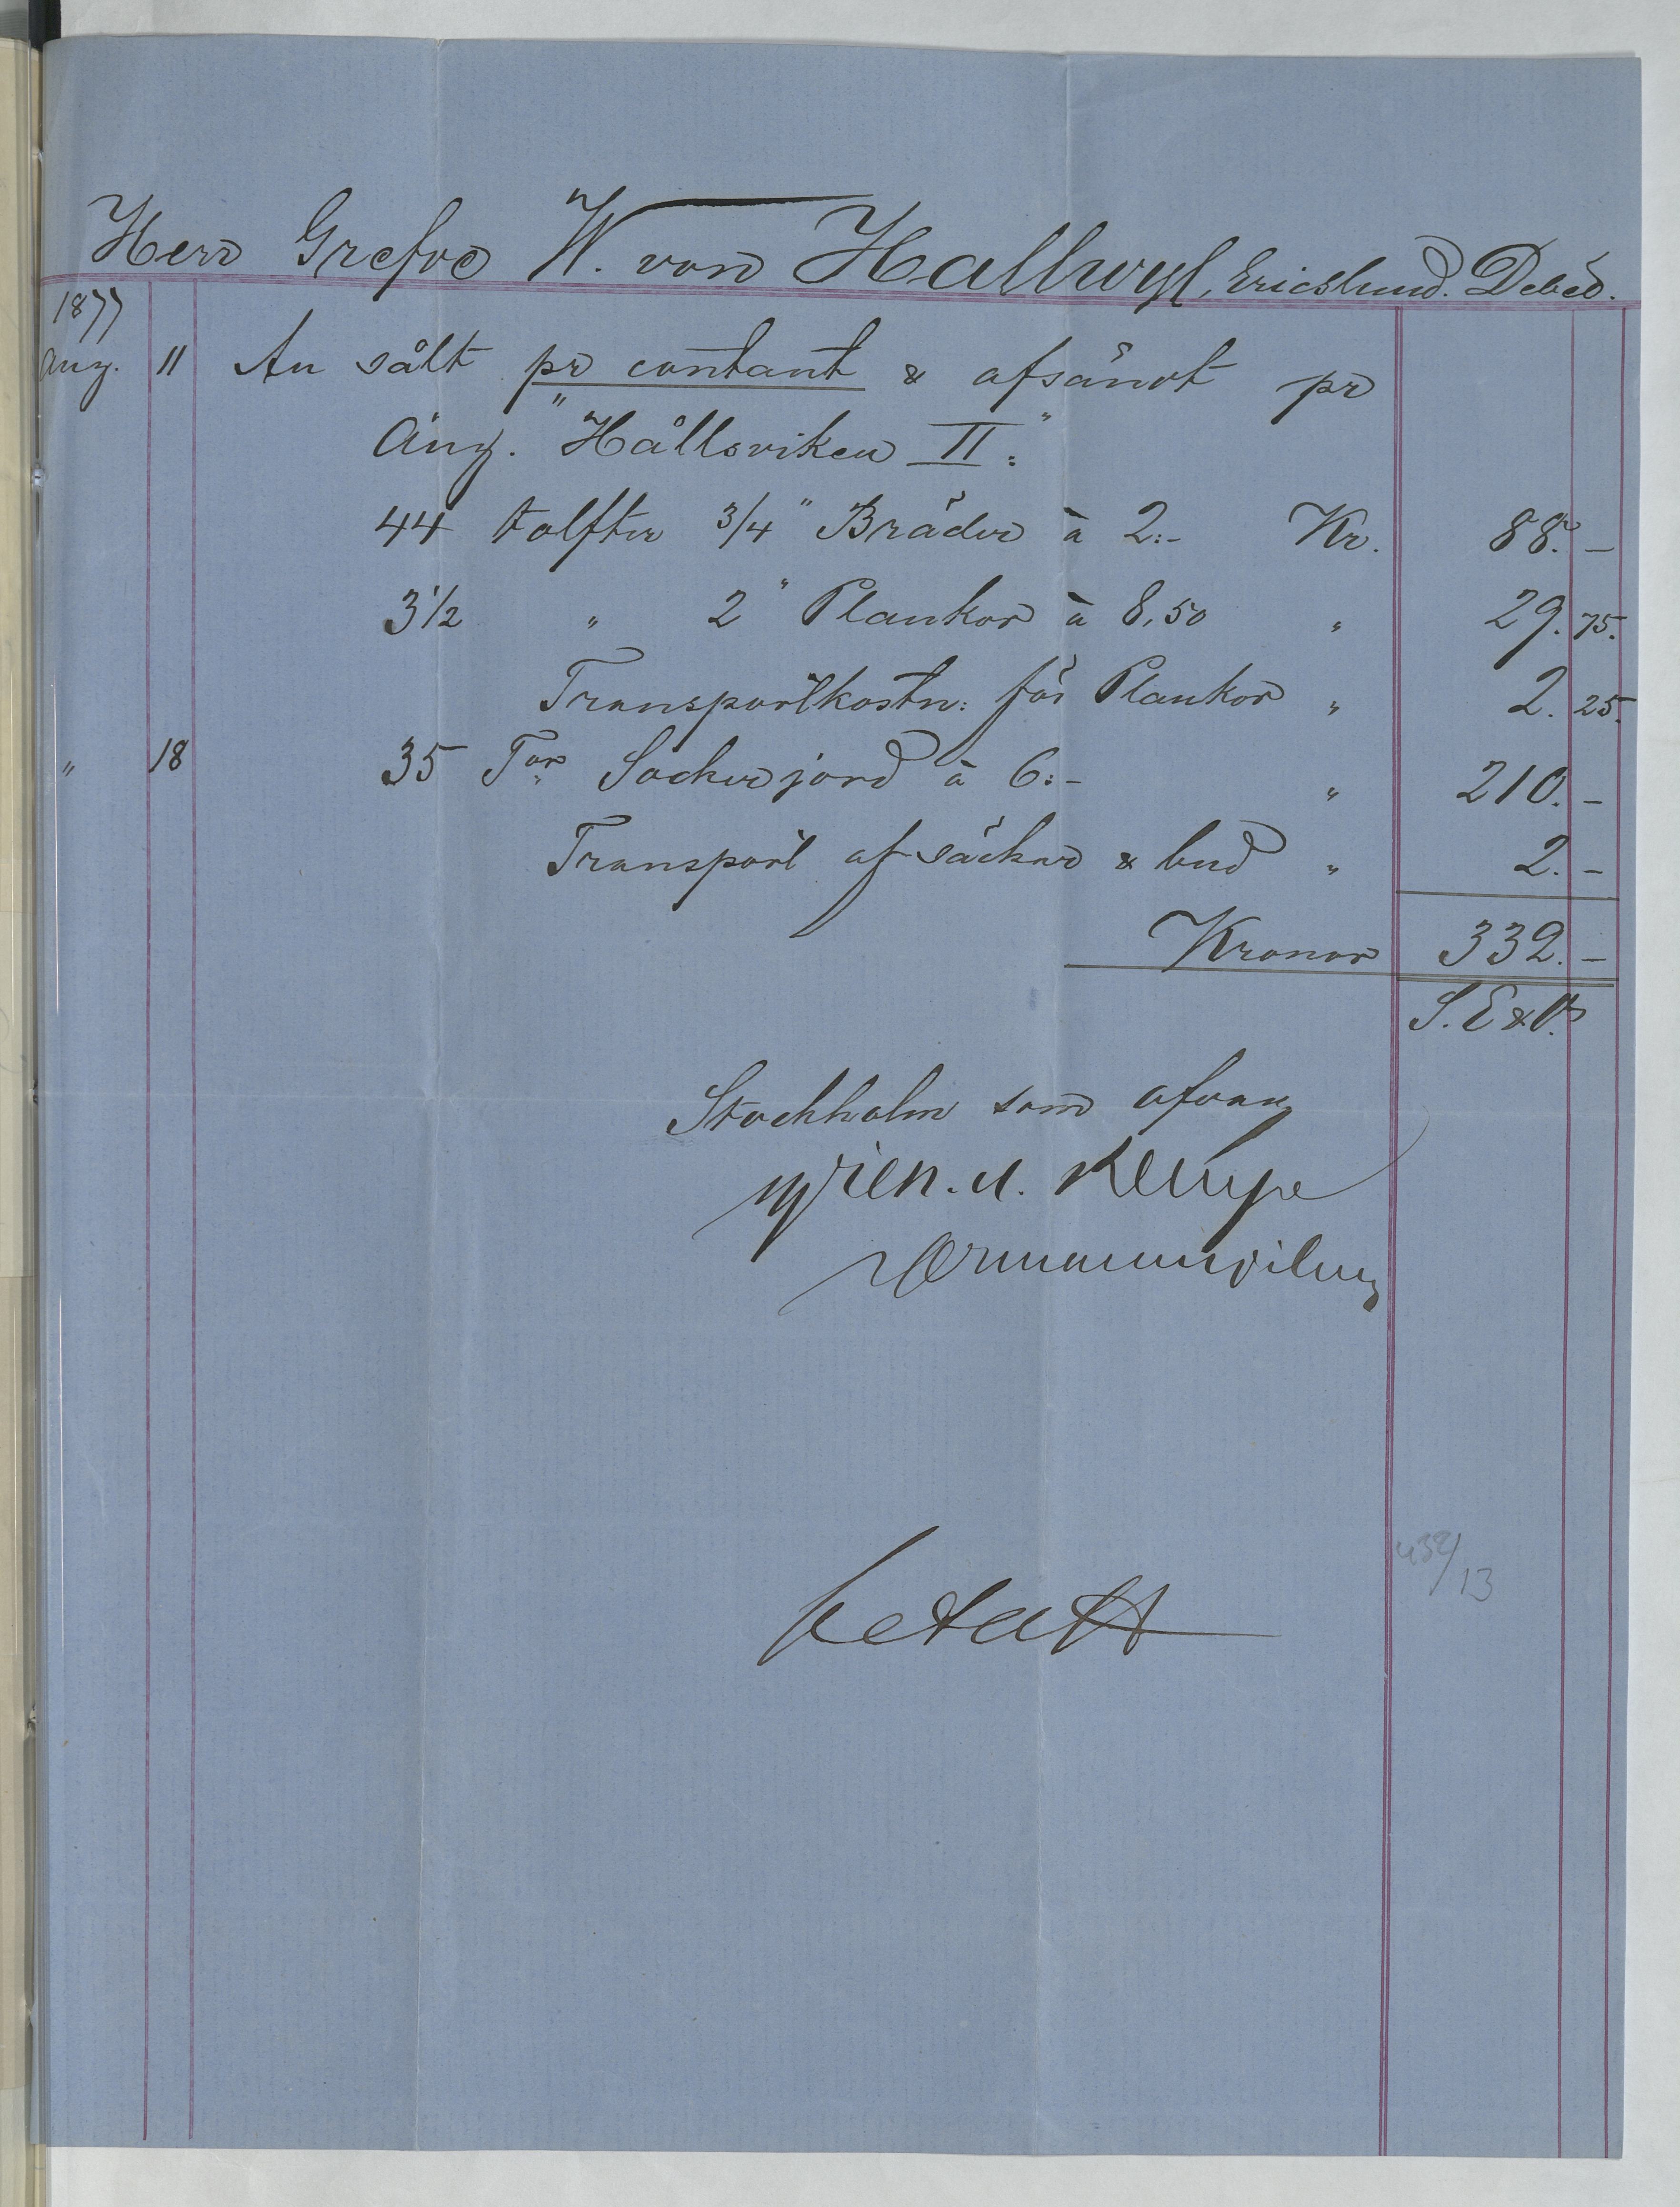 Herr Grefve W. von Hallwyl, Ericslund. Debet.
1877
Aug. 11 An sålt pr contant & afsändt pr
Ång. "Hållsviken II":
44 tolfter 3/4" Bräder à 2:- Kr. 88. -
3 1/2 " 2" Plankor à 8,50 " 29. 75.
Transportkostn: för Plankor " 2. 25.
" 18 35 T:or Sockerjord à 6:- " 210. -
Transport af säckar & bud " 2. -
Kronor 332. -
S. E & O.
Stockholm som ofvan
Kempe
betalt
432/13